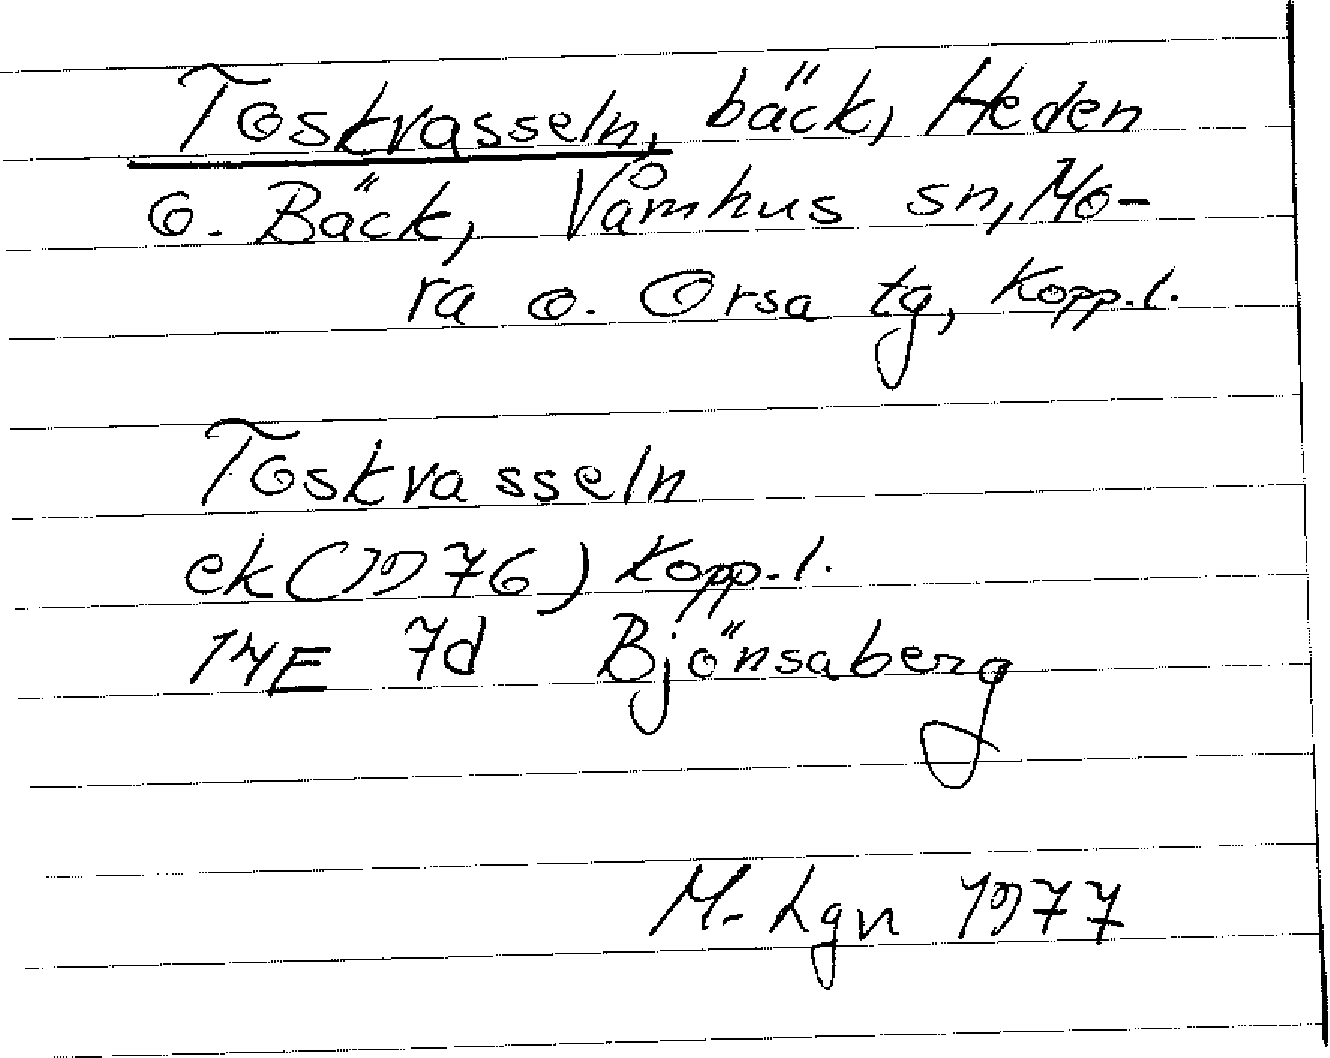 Toskvasseln, bäck, Heden
o. Bäck, Våmhus sn, Mo-
ra o. Orsa tg, Kopp. l.
Toskvasseln
ek (1976) Kopp. l.
14E 7d Bjönsaberg
M. Lgn 1977